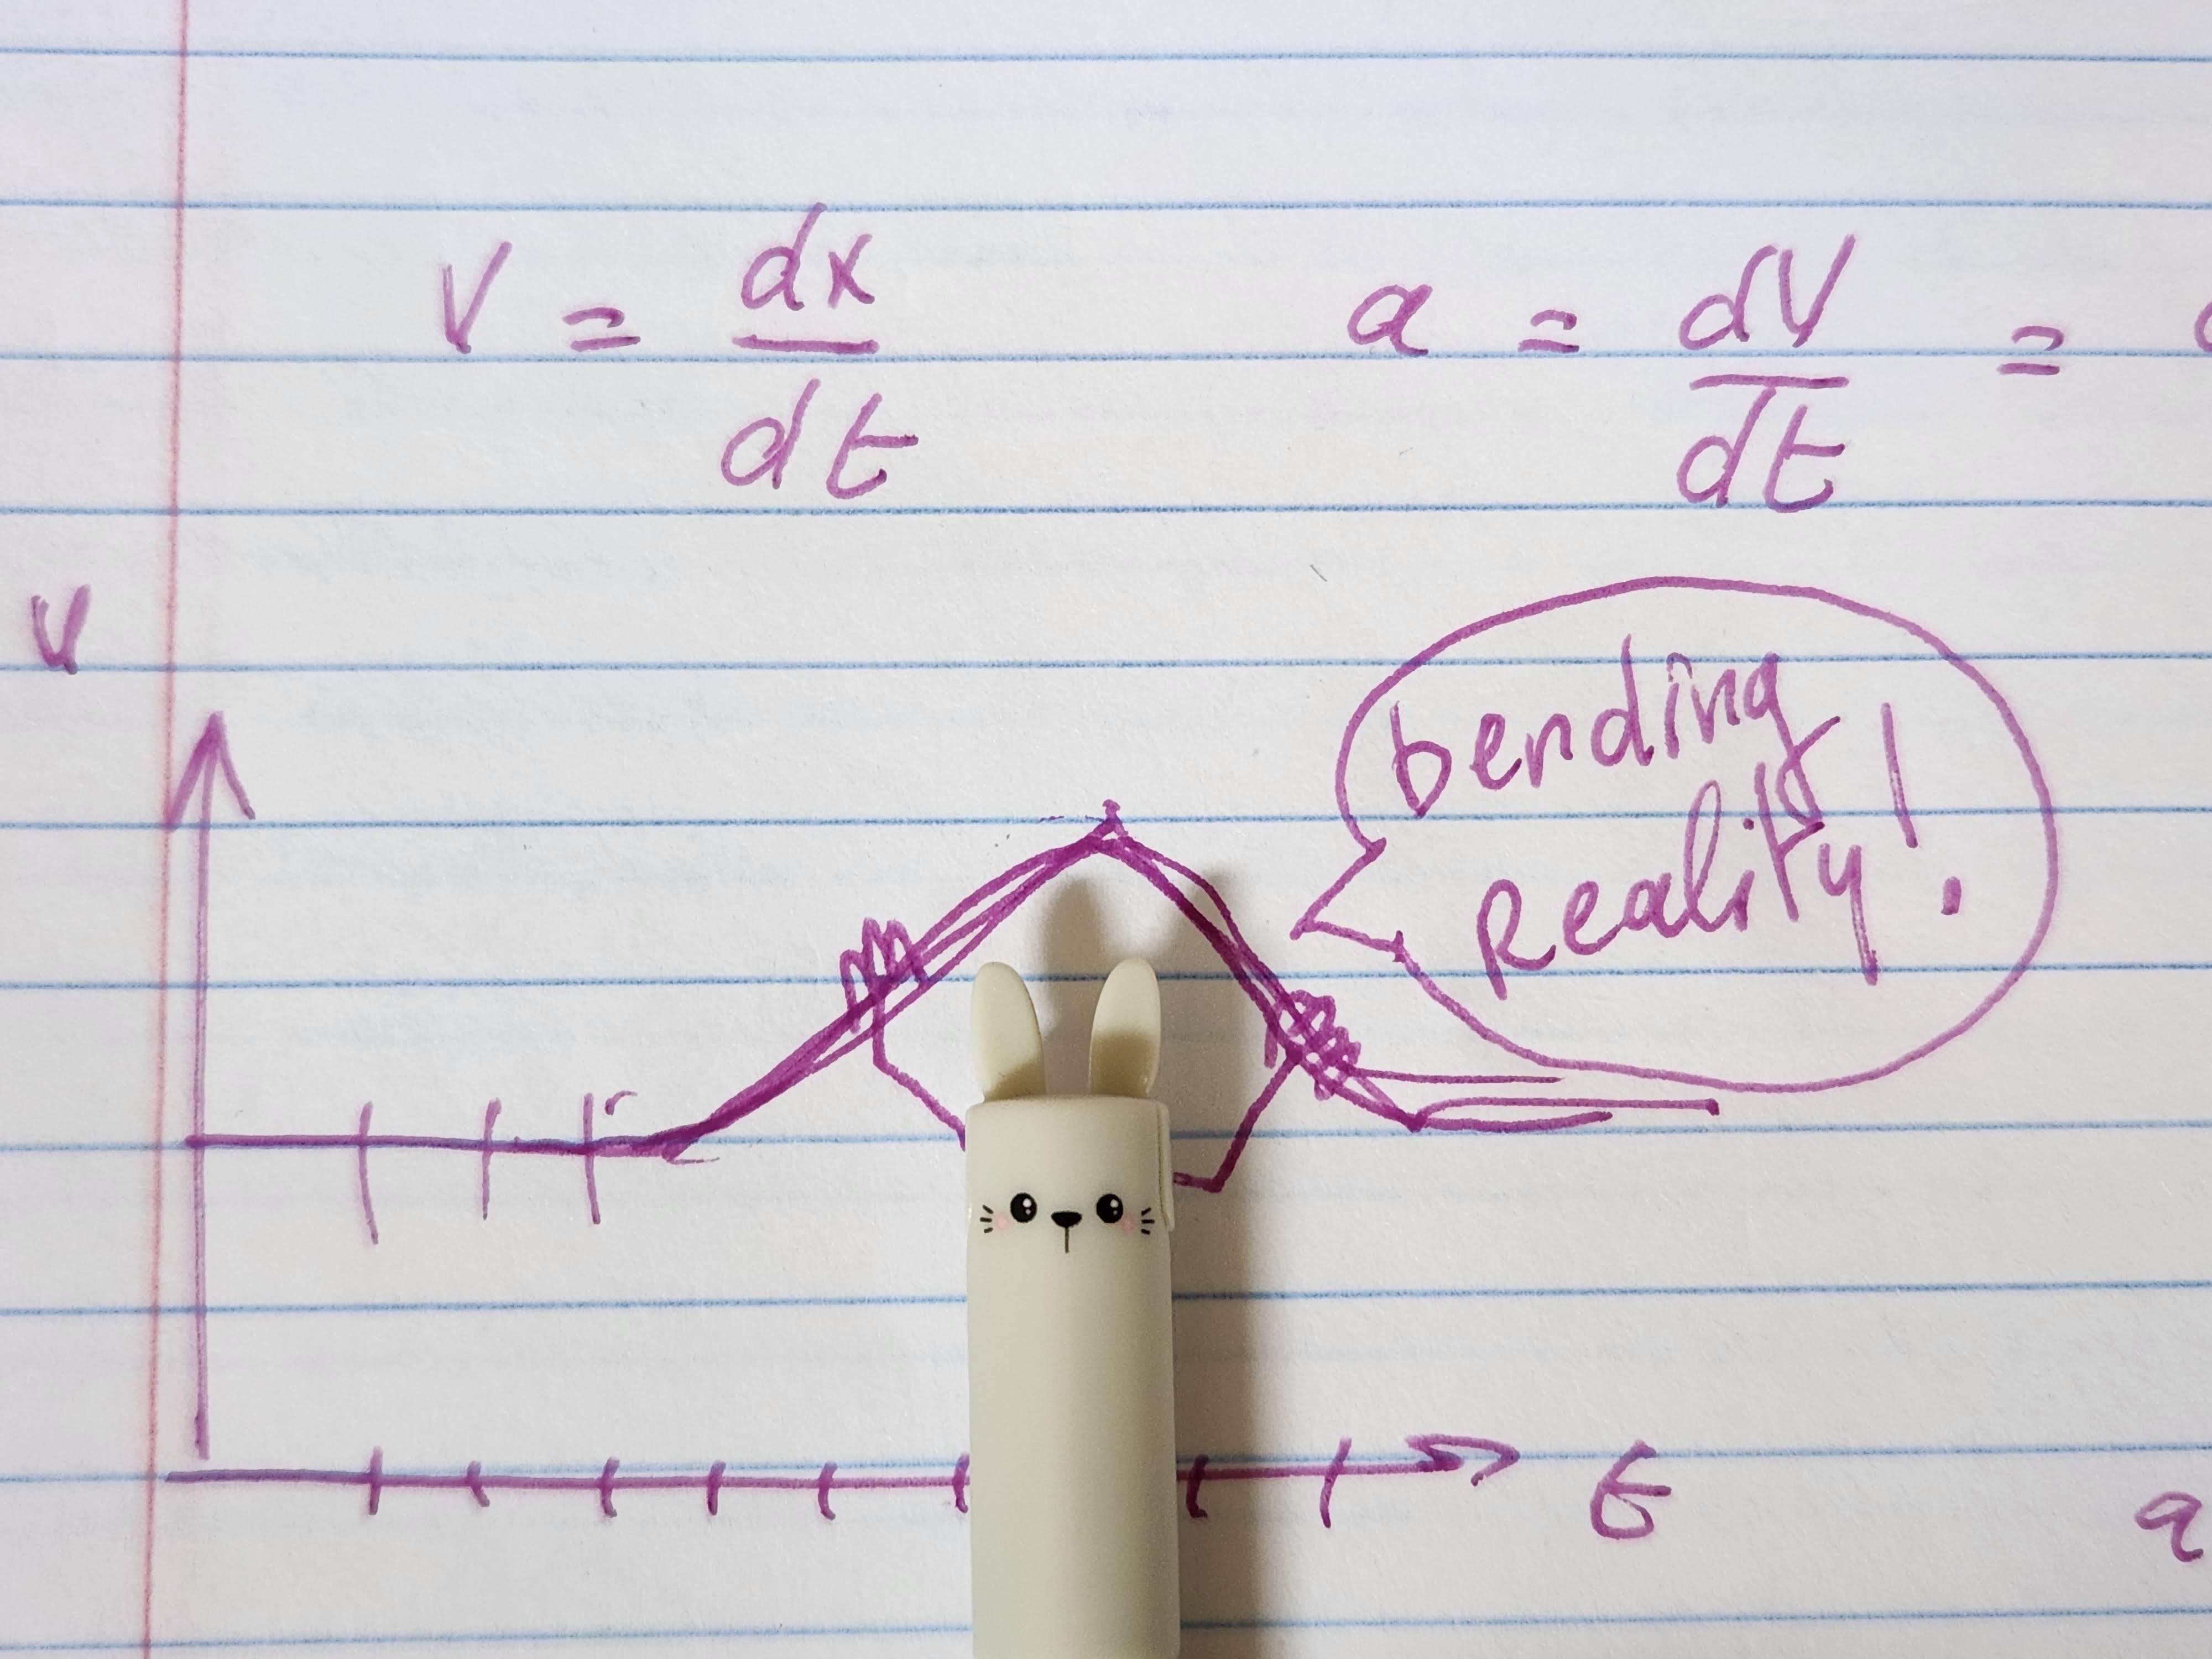 v = dx/dt
a = dV/dt =
v
bending
reality!
t
a